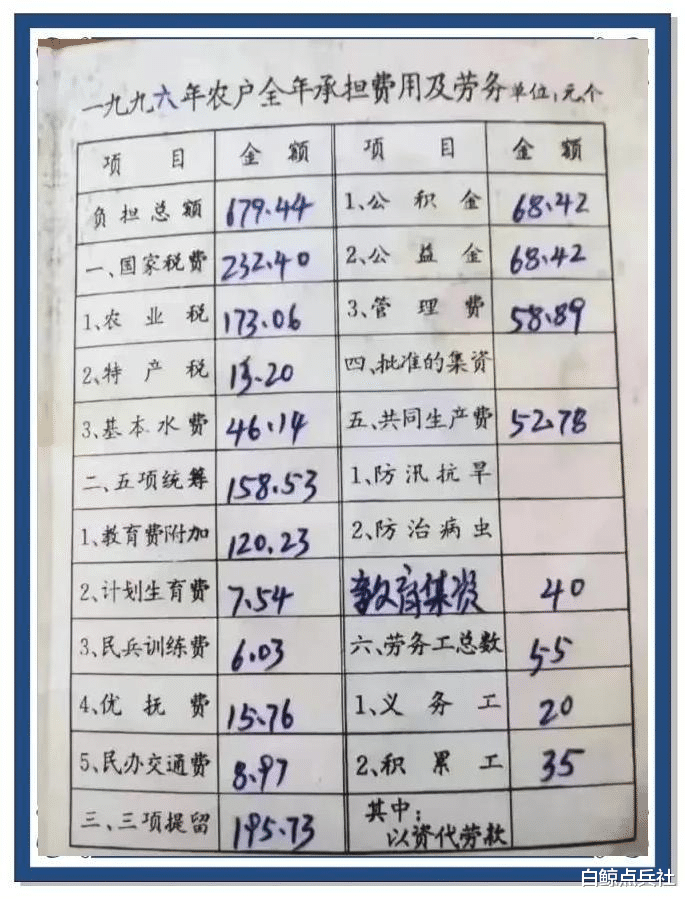 一九九六年农户全年承担费用及劳务 单位:元、个
项 目 金 额 项 目 金 额
负担总额 679.44 1、公积金 68.42
一、国家税费 232.40 2、公益金 68.42
1、农业税 173.06 3、管理费 58.89
2、特产税 13.20 四、批准的集资
3、基本水费 46.14 五、共同生产费 52.78
二、五项统筹 158.53 1、防汛抗旱
1、教育费附加 120.23 2、防治病虫
2、计划生育费 7.54 教育集资 40
3、民兵训练费 6.03 六、劳务工总数 55
4、优抚费 15.76 1、义务工 20
5、民办交通费 8.97 2、积累工 35
三、三项提留 195.73 其中:
以资代劳款
白鲸点兵社